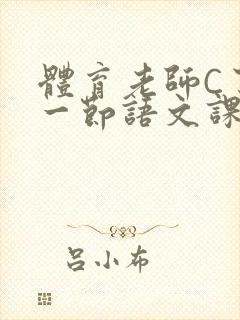 體育老師C
一節語文課
呂小布